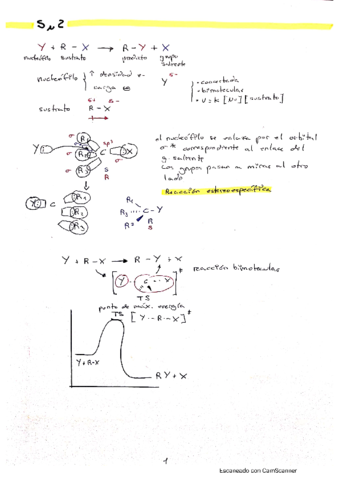 SN2
Y + R - X → R - Y + X
nucleófilo sustrato producto grupo saliente
nucleófilo { ↑ densidad e-
carga ⊖
Y
δ-
- concertada
- bimolecular
- v = k [Nu-] [sustrato]
sustrato
δ+ δ-
R - X
el nucleófilo se enlaza por el orbital
σ* correspondiente al enlace del
g. saliente
Los grupos pasan a mirar al otro
lado
Reacción estereoespecífica
Y
R1
R2
R3
C
sp2
X
S
R
Y
C
R1
R2
R3
R1
R3 C - Y
R2
R
S
Y + R - X → R - Y + X
reacción bimolecular
[ Y ··· C ··· X ]‡
TS
punto de máx. energía
TS [ Y ·· R ·· X ]‡
Y + R - X
RY + X
1
Escaneado con CamScanner